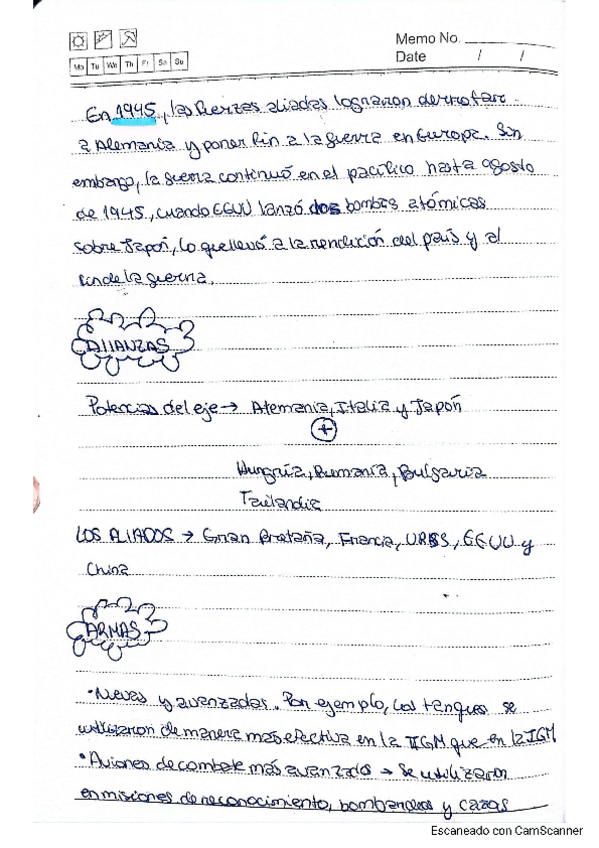 Memo No.
Date / /
Mo Tu We Th Fr Sa Su
En 1945, las fuerzas aliadas lograron derrotar
a Alemania y poner fin a la guerra en Europa. Sin
embargo, la guerra continuó en el pacífico hasta agosto
de 1945, cuando EEUU lanzó dos bombas atómicas
sobre Japón, lo que llevó a la rendición del país y al
fin de la guerra.
AlIANZAS
Potencias del eje → Alemania, Italia y Japón
+
Hungría, Rumanía, Bulgaria
Tailandia
LOS ALIADOS → Gran Bretaña, Francia, URSS, EEUU y
China
ARMAS
• Nuevas y avanzadas. Por ejemplo, los tanques se
utilizaron de manera más efectiva en la IIGM que en la IGM
• Aviones de combate más avanzados → Se utilizaron
en misiones de reconocimiento, bombardeos y cazas
Escaneado con CamScanner